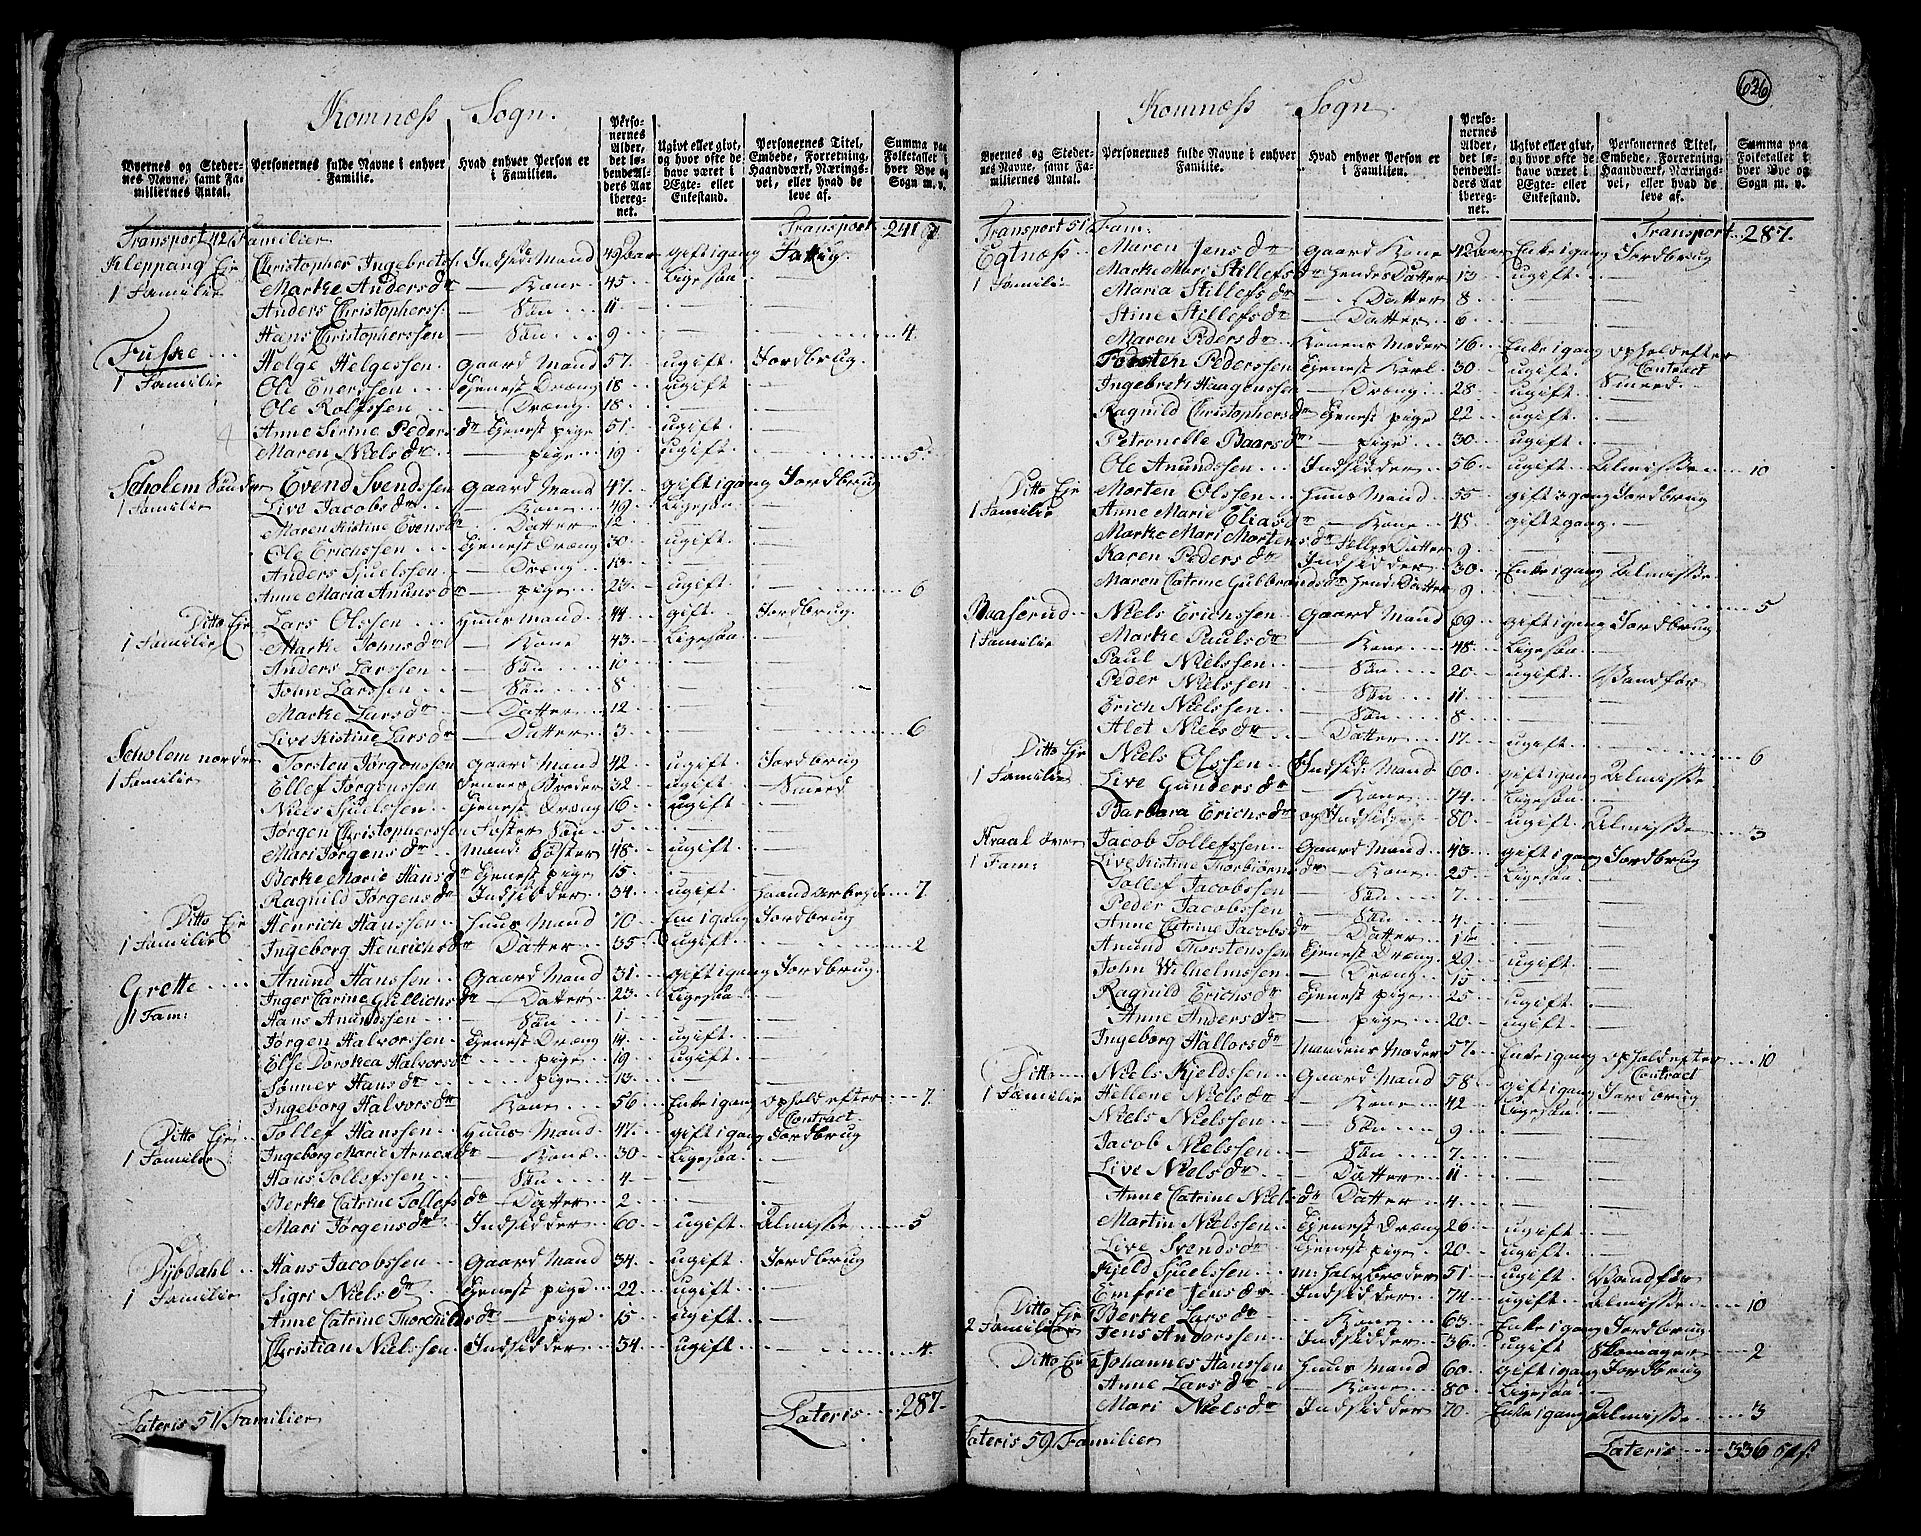 Komnæss Sogn.
Byernes og Stedernes Navne, samt Familiernes Antal. Personernes fulde Navne i enhver Familie. Hvad enhver Person er i Familien. Personernes Alder, det løbende Alders Aar iberegnet. Ugivt eller givt, og hvor ofte de have været i Ægte- eller Enkestand. Personernes Titel, Embede, Forretning, Haandværk, Næringsvei, eller hvad de leve af. Summa paa Folketallet i hver Bye og Sogn m. v.
Transport 42 Familier Transport 241
Kleppang Eje Christopher Ingebrets. Indsidd Mand 49 Aar giftigang
1 Familie Marke Andersdr — Kone 45 Ligesaa —
Anders Christophers. — Søn 11 — —
Hans Christopherssen — Søn 9 — — 4.
Fuske Helge Helgessen Gaard Mand 57. ugift Jordbrug
1 Familie Ole Enerssen Tjenest Dræng 18 ugift —
Ole Rolfssen — Dræng 18 — —
Anne Sirine Pedersdr Tjenest pige 51. ugift —
Maren Nielsdr — pige 19 ugift — 5.
Scholem Sønder Evend Svendssen Gaard Mand 47. giftigang Jordbrug
1 Familie Live Jacobsdr — Kone 49 Ligesaa —
Maren Kistine Evensdr Datter 12 — —
Ole Erichssen Tjenest Dræng 30 ugift —
Anders Sjuelssen — Dræng 13 — —
Anne Maria Anunsdr — pige 20 ugift — 6
Ditto Eje Lars Olssen Huus Mand 44 gift Jordbrug
1 Familie Marke Johnsdr — Kone 43 Ligesaa —
Anders Larssen — Søn 10 — —
John Larssen — Søn 8 — —
Marke Larsdr — Datter 12 — —
Live Kistine Larsdr — Datter 3 — — 6
Scholem nordre Torsten Jørgenssen Gaard Mand 42 ugift Jordbrug
1 Familie Ellef Jørgenssen Broder 32 ugift Smed
Niels Sjuelssen Tjenest Dræng 16 ugift —
Jørgen Christopherssen Foster Søn 5 —
Mari Jørgensdr Mands Søster 48 ugift —
Berke Marie Hansdr Tjenest pige 15 —
Ragnild Jørgensdr Indsidder 34 ugift haand Arbejde 7
Ditto Eje Henrich Hanssen Huus Mand 70 Em igang Jordbrug
1 Familie Ingeborg Henrichsdr Datter 35 ugift — 2
Grette Anund Hanssen Gaard Mand 31 giftigang Jordbrug
1 Fam: Inger Carine Gullichsdr Datter 23 Ligesaa —
Hans Anundssen — Søn 1 — —
Jørgen Halvorssen Tjenest Dræng 14 ugift —
Else Dorthea Halvorsdr pige 19 ugift —
Sønnev Hansdr pige 13 — —
Ingeborg Halvorsdr Kone 56 Enke igang ophold efter Contract 7.
Ditto Eje Tollef Hanssen Huus Mand 47. giftigang Jordbrug
1 Familie Ingeborg Marie Arnesdr — Kone 30 Ligesaa —
Hans Tollefssen — Søn 4 — —
Berke Catrine Tollefsdr — Datter 2 —
Mari Jørgensdr Indsidder 60 ugift Almisse 5
Dybdahl Hans Jacobssen Gaard Mand 34. ugift Jordbrug
1 Familie Sigri Nielsdr Tjenest pige 22 ugift —
Anne Catrine Thorchildsdr — pige 15 ugift —
Christian Nielssen Indsidder 34 ugift — 4.
Lateris 51 Familier Lateris 287.
626
Komnæss Sogn
Byernes og Stedernes Navne, samt Familiernes Antal. Personernes fulde Navne i enhver Familie. Hvad enhver Person er i Familien. Personernes Alder, det løbende Alders Aar iberegnet. Ugivt eller givt, og hvor ofte de have været i Ægte- eller Enkestand. Personernes Titel, Embede, Forretning, Haandværk, Næringsvei, eller hvad de leve af. Summa paa Folketallet i hver Bye og Sogn m. v.
Transport 51 Fam: Transport 287.
Egtnæss Maren Jensdr Gaard Kone 42 Aar Enke igang Jordbrug
1 Familie Marke Mari Stillefsdr Hendes Datter 13 ugift —
Maria Stillefsdr — Datter 8 —
Stine Stillefsdr — Datter 6 —
Maren Pedersdr Konens Moder 76 Enke igang ophold efter Contract
Torsten Pederssen Tjenest Karl 30 ugift
Ingebret Haagenssen — Dræng 28 ugift Smed
Ragnild Christophersdr Tjenest pige 22 ugift —
Petronelle Baarsdr — pige 30 ugift —
Ole Anundssen Indsidder 56 ugift Almisse 10
Ditto Eje Morten Olssen Huus Mand 55 gift 2 gang Jordbrug
1 Familie Anne Marie Eliasdr — Kone 45 gift 2 gang —
Marke Mari Mortensdr Datter 9
Karen Pedersdr Indsidder 30 Enke igang Almisse
Maren Catrine Gulbrandsdr Hends Datter 9 — 5
Baaserud Niels Erichssen Gaard Mand 69 giftigang Jordbrug
1 Familie Marke Paulsdr Kone 48 Ligesaa —
Paul Nielssen Søn 20 ugift Vanfør
Peder Nielssen Søn 11
Erich Nielssen — Søn 8
Alet Nielsdr Datter 17 ugift 6
Ditto Eje Niels Olssen Indsid: Mand 60 giftigang Almisse
1 Familie Live Gundersdr — Kone 74 Ligesaa —
Barbara Erichsdr og Indsidder 80 ugift Almisse 3
Kraal øvre Jacob Tollefssen Gaard Mand 43 giftigang Jordbrug
1 Fam: Live Kistine Thorbiørnsdr — Kone 25 Ligesaa —
Tollef Jacobssen Søn 7
Peder Jacobssen Søn 4
Anne Catrine Jacobsdr Datter 1
Anund Thorstenssen Tjenest Dræng 29 ugift —
John Wilhelmssen — Dræng 15
Ragnild Erichsdr Tjenest pige 25 ugift
Anne Andersdr pige 20 ugift
Ingeborg Hallorsdr Mandens Moder 57. Enke igang ophold efter Contract 10
Ditto Niels Kjeldssen Gaard Mand 58 giftigang Jordbrug
1 Familie Hellene Nielsdr — Kone 42 Ligesaa —
Niels Nielssen — Søn 9
Jacob Nielssen — Søn 7
Live Nielsdr Datter 11
Anne Catrine Nielsdr Datter 4
Martin Nielssen Tjenest Dræng 26 ugift
Live Svendsdr Tjenest pige 20 ugift
Kjeld Sjuelssen m: halv Broder 51 ugift Vanfør
Emfrie Jensdr Indsidder 74 ugift Almisse 10
Ditto Eje Berke Larsdr Kone 63 Enke igang Jordbrug
2 Familier Jens Anderssen Indsidder 36 ugift Skomager 2
Ditto Eje Johannes Hanssen Huus Mand 60 giftigang Jordbrug
Anne Larsdr — Kone 80 Ligesaa —
Mari Nielsdr Indsidder 70 Enke igang Almisse 3
Lateris 59 Familier Lateris 336